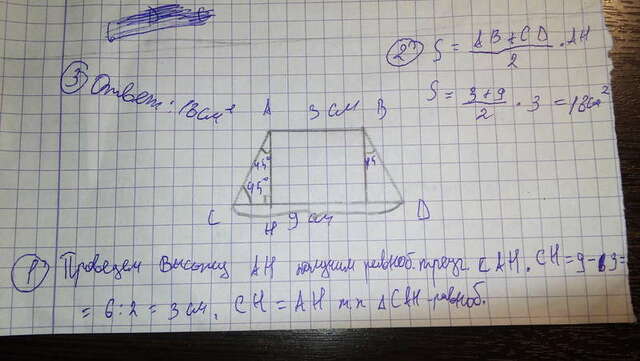 2) S = (AB + CD)/2 · AH
3) Ответ: 18 см²
S = (3 + 9)/2 · 3 = 18 см²
A 3 см B
45° 45
45°
C H 9 см D
1) Проведем высоту AH получим равноб. треуг. CAH. CH = 9 - 3 =
= 6 : 2 = 3 см. CH = AH т.к ΔCAH - равноб.